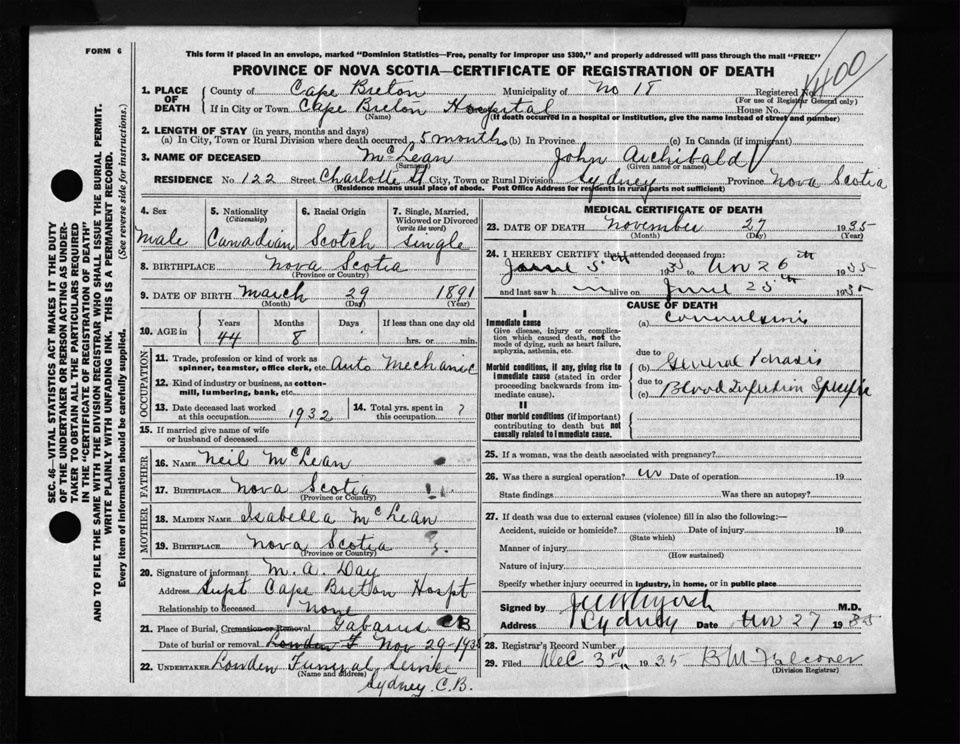 FORM 6
This form if placed in an envelope, marked "Dominion Statistics—Free, penalty for improper use $300," and properly addressed will pass through the mail "FREE"
PROVINCE OF NOVA SCOTIA—CERTIFICATE OF REGISTRATION OF DEATH
1. PLACE OF DEATH
County of Cape Breton Municipality of No 18 Registered No.
(For use of Registrar General only)
If in City or Town Cape Breton Hospital House No.
(Name) (If death occurred in a hospital or institution, give the name instead of street and number)
2. LENGTH OF STAY (in years, months and days)
(a) In City, Town or Rural Division where death occurred 5 months (b) In Province (c) In Canada (if immigrant)
3. NAME OF DECEASED McLean John Archibald
(Surname) (Given name or names)
RESIDENCE No. 122 Street Charlotte St City, Town or Rural Division Sydney Province Nova Scotia
(Residence means usual place of abode. Post Office Address for residents in rural parts not sufficient)
SEC. 46—VITAL STATISTICS ACT MAKES IT THE DUTY
OF THE UNDERTAKER OR PERSON ACTING AS UNDER-
TAKER TO OBTAIN ALL THE PARTICULARS REQUIRED
IN THE "CERTIFICATE OF REGISTRATION OF DEATH"
AND TO FILE THE SAME WITH THE DIVISION REGISTRAR WHO SHALL ISSUE THE BURIAL PERMIT.
WRITE PLAINLY WITH UNFADING INK. THIS IS A PERMANENT RECORD.
Every item of information should be carefully supplied. (See reverse side for instructions.)
4. Sex
Male
5. Nationality
(Citizenship)
Canadian
6. Racial Origin
Scotch
7. Single, Married,
Widowed or Divorced
(write the word)
Single
8. BIRTHPLACE Nova Scotia
(Province or Country)
9. DATE OF BIRTH March 29 1891
(Month) (Day) (Year)
10. AGE in
Years Months Days If less than one day old
44 8 hrs. or min.
OCCUPATION
11. Trade, profession or kind of work as
spinner, teamster, office clerk, etc. Auto Mechanic
12. Kind of industry or business, as cotton-
mill, lumbering, bank, etc.
13. Date deceased last worked
at this occupation 1932
14. Total yrs. spent in
this occupation ?
15. If married give name of wife
or husband of deceased
FATHER
16. NAME Neil McLean
17. BIRTHPLACE Nova Scotia
(Province or Country)
MOTHER
18. MAIDEN NAME Isabella McLean
19. BIRTHPLACE Nova Scotia
(Province or Country)
20. Signature of informant M. A. Day
Address Supt Cape Breton Hospt
Relationship to deceased None
21. Place of Burial, Cremation or Removal Gabarus CB
Date of burial or removal Lowden F Nov 29-1935
22. UNDERTAKER Lowden Funeral Service
(Name and address)
Sydney C.B.
MEDICAL CERTIFICATE OF DEATH
23. DATE OF DEATH November 27 1935
(Month) (Day) (Year)
24. I HEREBY CERTIFY that I attended deceased from:
5th 1935 to Nov 26th 1935
and last saw h im alive on June 25th 1935
CAUSE OF DEATH
I
Immediate cause
Give disease, injury or complica-
tion which caused death, not the
mode of dying, such as heart failure,
asphyxia, asthenia, etc.
(a) Convulsions
due to
Morbid conditions, if any, giving rise to
immediate cause (stated in order
proceeding backwards from im-
mediate cause).
(b) General
due to
(c) Blood Infection Specific
II
Other morbid conditions (if important)
contributing to death but not
causally related to immediate cause.
25. If a woman, was the death associated with pregnancy?
26. Was there a surgical operation? no Date of operation 19
State findings Was there an autopsy?
27. If death was due to external causes (violence) fill in also the following:—
Accident, suicide or homicide? Date of injury 19
(State which)
Manner of injury
(How sustained)
Nature of injury
Specify whether injury occurred in industry, in home, or in public place
Signed by M.D.
Address Sydney Date Nov 27 1935
28. Registrar's Record Number
29. Filed Dec 3rd 1935 B M Falconer
(Division Registrar)